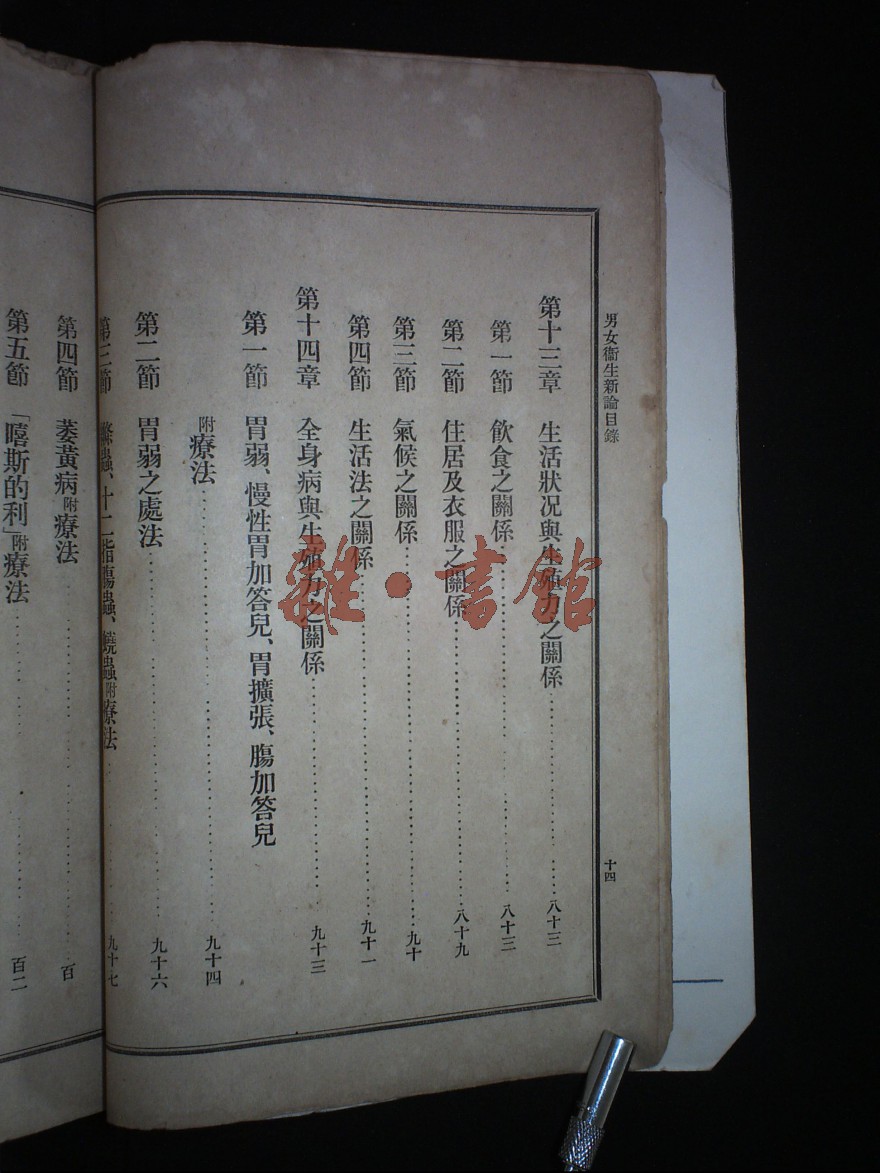 男女衞生新論目錄
十四
第十三章 生活狀况與生殖力之關係 八十三
第一節 飮食之關係 八十三
第二節 住居及衣服之關係 八十九
第三節 氣候之關係 九十
第四節 生活法之關係 九十一
第十四章 全身病與生殖力之關係 九十三
第一節 胃弱、慢性胃加答兒、胃擴張、膓加答兒
附療法 九十四
第二節 胃弱之處法 九十六
第三節 蟲、十二指膓蟲、蟯蟲附療法 九十七
第四節 萎黃病附療法 百
第五節 「嘻斯的利」附療法 百二
雜·書館